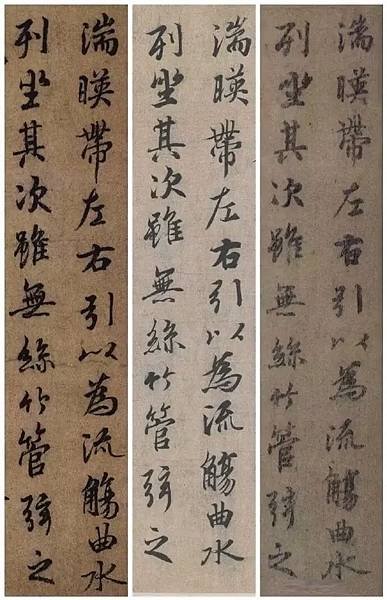 湍暎帶左右引以為流觴曲水
列坐其次雖無絲竹管弦之
湍暎帶左右引以為流觴曲水
列坐其次雖無絲竹管弦之
湍暎帶左右引以為流觴曲水
列坐其次雖無絲竹管弦之